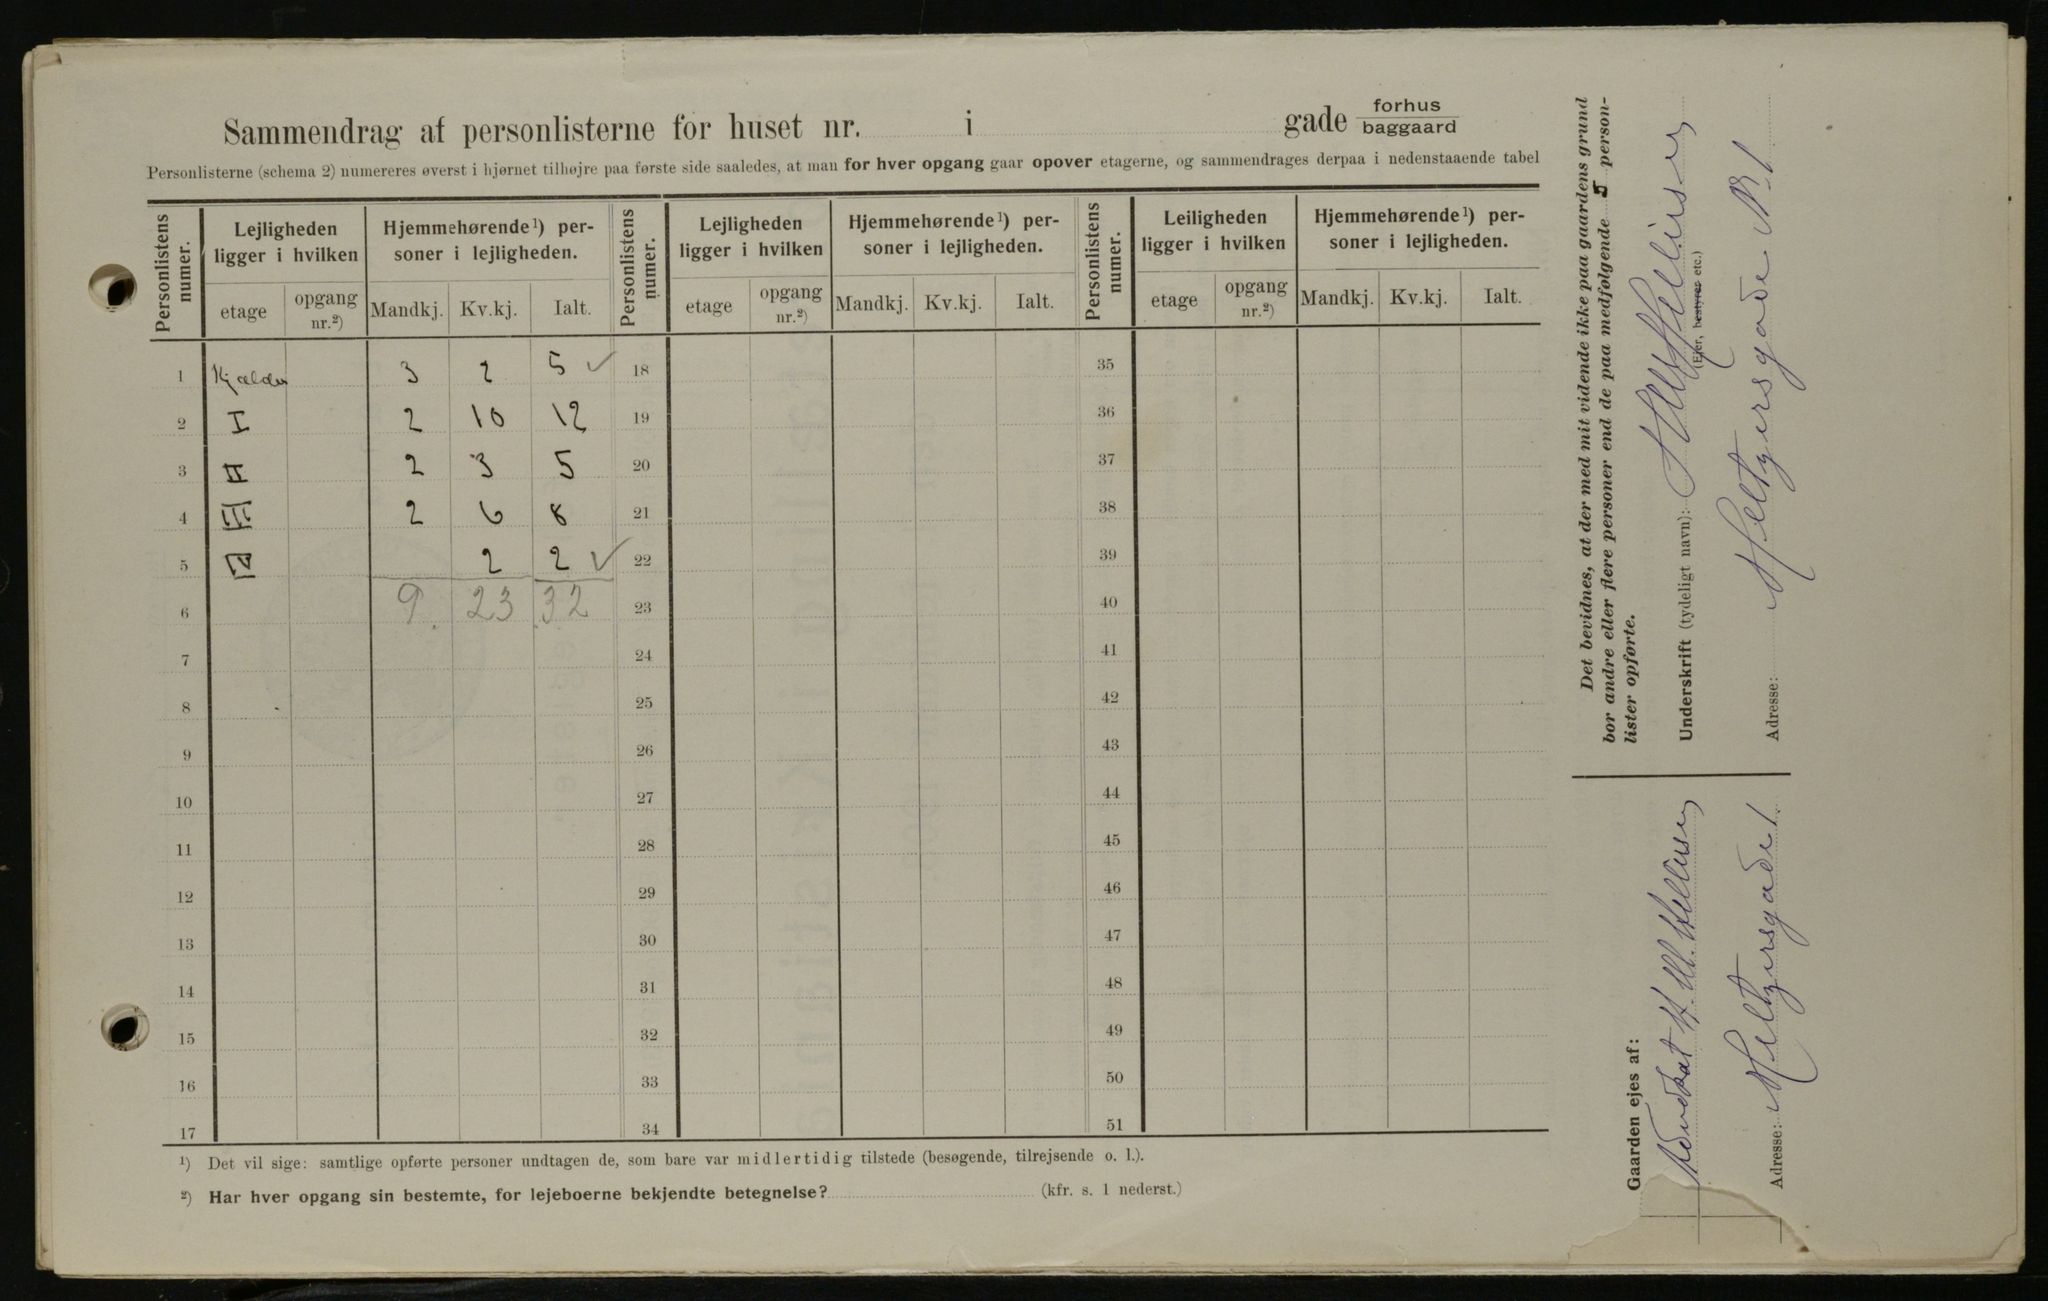 Sammendrag af personlisterne for huset nr. i gade forhus baggaard
Personlisterne (schema 2) numereres øverst i hjørnet tilhøjre paa første side saaledes, at man for hver opgang gaar opover etagerne, og sammendrages derpaa i nedenstaaende tabel
Personlistens numer. Lejligheden ligger i hvilken Hjemmehørende¹) personer i lejligheden. Personlistens numer. Lejligheden ligger i hvilken Hjemmehørende¹) personer i lejligheden. Personlistens numer. Leiligheden ligger i hvilken Hjemmehørende¹) personer i lejligheden.
etage opgang nr.²) Mandkj. Kv.kj. Ialt. etage opgang nr.²) Mandkj. Kv.kj. Ialt. etage opgang nr.²) Mandkj. Kv.kj. Ialt.
1 Kjælder 3 2 5 ✓ 18 35
2 I 2 10 12 19 36
3 II 2 3 5 20 37
4 III 2 6 8 21 38
5 IV 2 2 ✓ 22 39
6 9 23 32 23 40
7 24 41
8 25 42
9 26 43
10 27 44
11 28 45
12 29 46
13 30 47
14 31 48
15 32 49
16 33 50
17 34 51
¹) Det vil sige: samtlige opførte personer undtagen de, som bare var midlertidig tilstede (besøgende, tilrejsende o. l.).
²) Har hver opgang sin bestemte, for lejeboerne bekjendte betegnelse? (kfr. s. 1 nederst.)
Det bevidnes, at der med mit vidende ikke paa gaardens grund
bor andre eller flere personer end de paa medfølgende 5 person-
lister opførte.
Underskrift (tydeligt navn):
(Ejer, bestyrer etc.)
Adresse: Meltzersgade No 1
Gaarden ejes af:
Advokat
Adresse: Meltzersgade 1